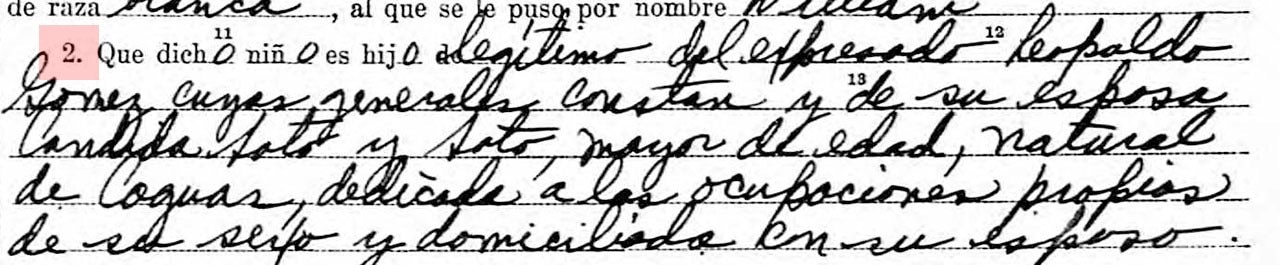 de raza blanca, al que se le puso por nombre William
2. Que dich o 11 niñ o es hij o d legítimo del expresado 12 Leopoldo
Gomez cuyas generales constan y 13 de su esposa
Candida Soto y Soto, mayor de edad, natural
de Caguas, dedicada a las ocupaciones propias
de su sexo y domiciliada con su esposo.